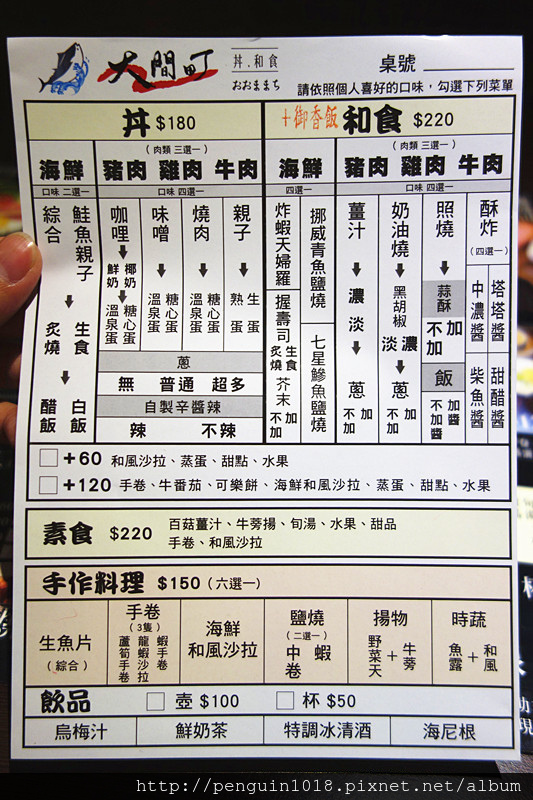 大間町
丼.和食
おおままち
桌號
請依照個人喜好的口味，勾選下列菜單
丼 $180
海鮮
口味 二選一
綜合
鮭魚親子
炙燒
生食
醋飯
白飯
（肉類 三選一）
豬肉 雞肉 牛肉
口味 四選一
咖哩
鮮奶
椰奶
溫泉蛋
糖心蛋
味噌
溫泉蛋
糖心蛋
燒肉
溫泉蛋
糖心蛋
親子
熟蛋
生蛋
蔥
無 普通 超多
自製辛醬辣
辣 不辣
+御香飯 和食 $220
海鮮
四選一
炸蝦天婦羅
挪威青魚鹽燒
握壽司
炙燒
生食
芥末
不加
加
七星鰺魚鹽燒
（肉類 三選一）
豬肉 雞肉 牛肉
口味 四選一
薑汁
濃
淡
蔥
不加
加
奶油燒
黑胡椒
淡
濃
蔥
不加
加
照燒
蒜酥
不加
加
飯
不加醬
加醬
酥炸
（四選一）
中濃醬
塔塔醬
柴魚醬
甜醋醬
+60 和風沙拉、蒸蛋、甜點、水果
+120 手卷、牛番茄、可樂餅、海鮮和風沙拉、蒸蛋、甜點、水果
素食 $220
百菇薑汁、牛蒡揚、旬湯、水果、甜品
手卷、和風沙拉
手作料理 $150（六選一）
生魚片
（綜合）
手卷
（3隻）
蘆筍手卷
龍蝦沙拉
蝦手卷
海鮮
和風沙拉
鹽燒
（二選一）
中卷
蝦
揚物
野菜天+牛蒡
時蔬
魚露+和風
飲品
壺 $100
杯 $50
烏梅汁
鮮奶茶
特調冰清酒
海尼根
http://penguin1018.pixnet.net/album